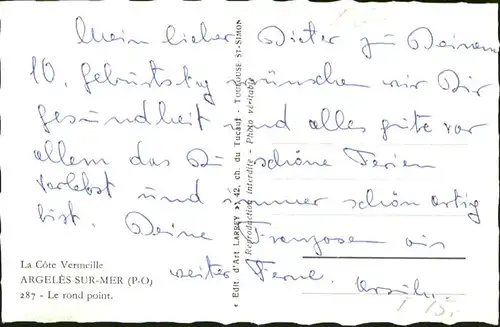 Mein lieber Dieter zu Deinem
10. Geburtstag wünschen wir Dir
Gesundheit und alles gute vor
allem das Du schöne Ferien
verlebst und immer schön artig
bist. Deine Franzosen in
weiter Ferne.
La Côte Vermeille
ARGELÈS-SUR-MER (P-O)
287 - Le rond point.
« Edit. d'Art LARREY », 42, ch. du Tucaut - TOULOUSE ST-SIMON
Reproduction Interdite - Photo véritable